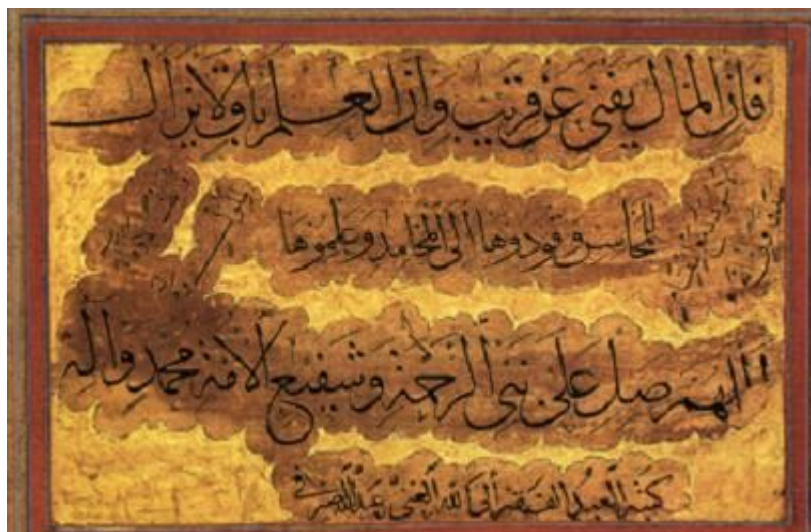 فإن المال يفنى عن قريب وإن العلم باق لا يزال
للمحاسن وقودوها إلى المحامد وعلموها
اللهم صل على نبي الرحمة وشفيع الأمة محمد وآله
كتبه العبد الفقير إلى الله الغني عبد الله